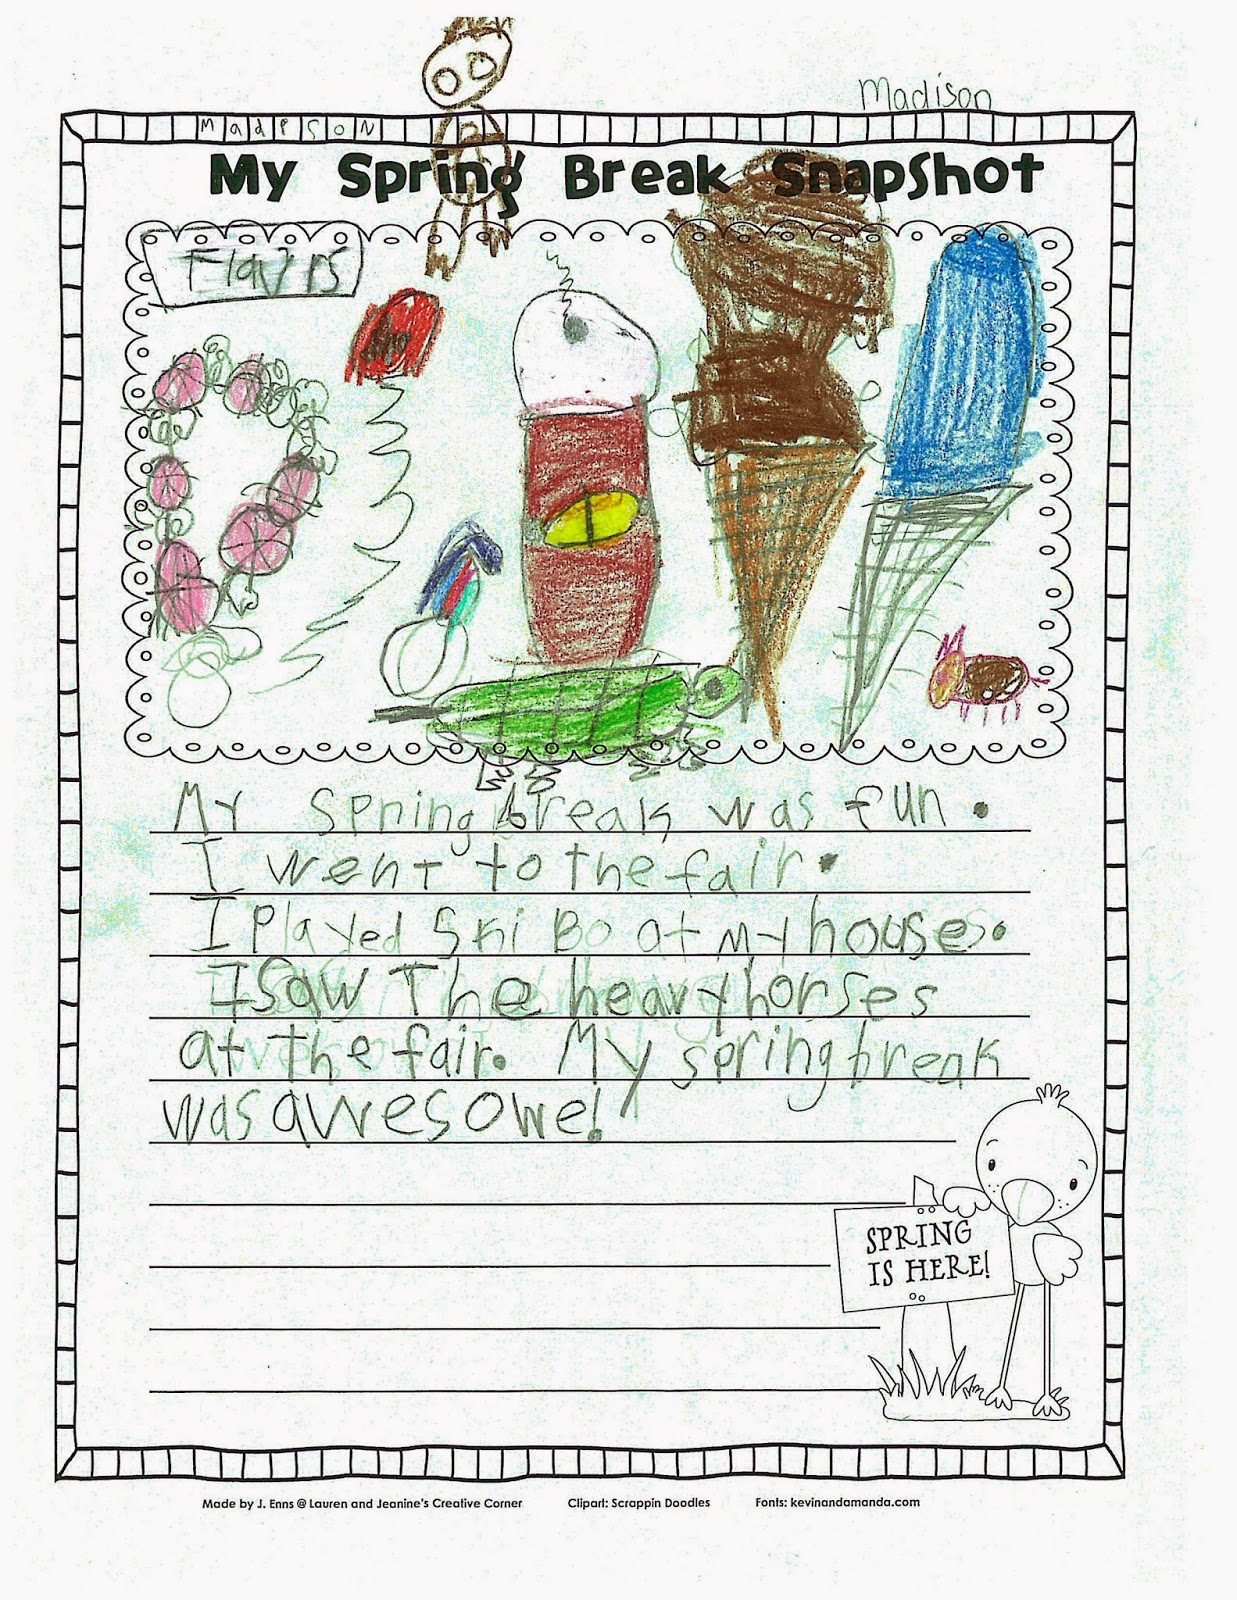 Madison
MadisoN
My Spring Break Snapshot
Flavrs
My spring break was fun.
I went to the fair.
I Played Ski Bo at my houses.
I saw The heavy horses
at the fair. My spring break
was awesowe!
SPRING
IS HERE!
Made by J. Enns @ Lauren and Jeanine's Creative Corner Clipart: Scrappin Doodles Fonts: kevinandamanda.com